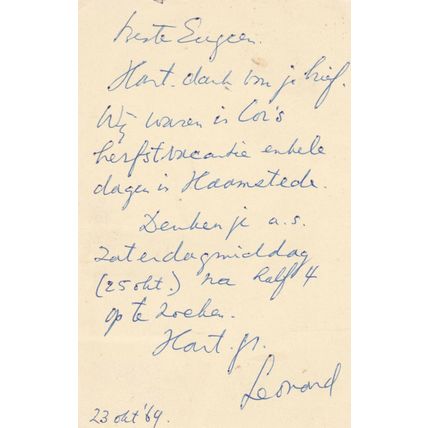 Beste Eugeen.
Hart. dank von je brief.
Wij waren in Cor's
herfstvacantie enkele
dagen in Haamstede.
Denken je a.s.
zaterdagmiddag
(25 okt.) na half 4
op te zoeken.
Hart. gr.
Leonard
23 okt '69.